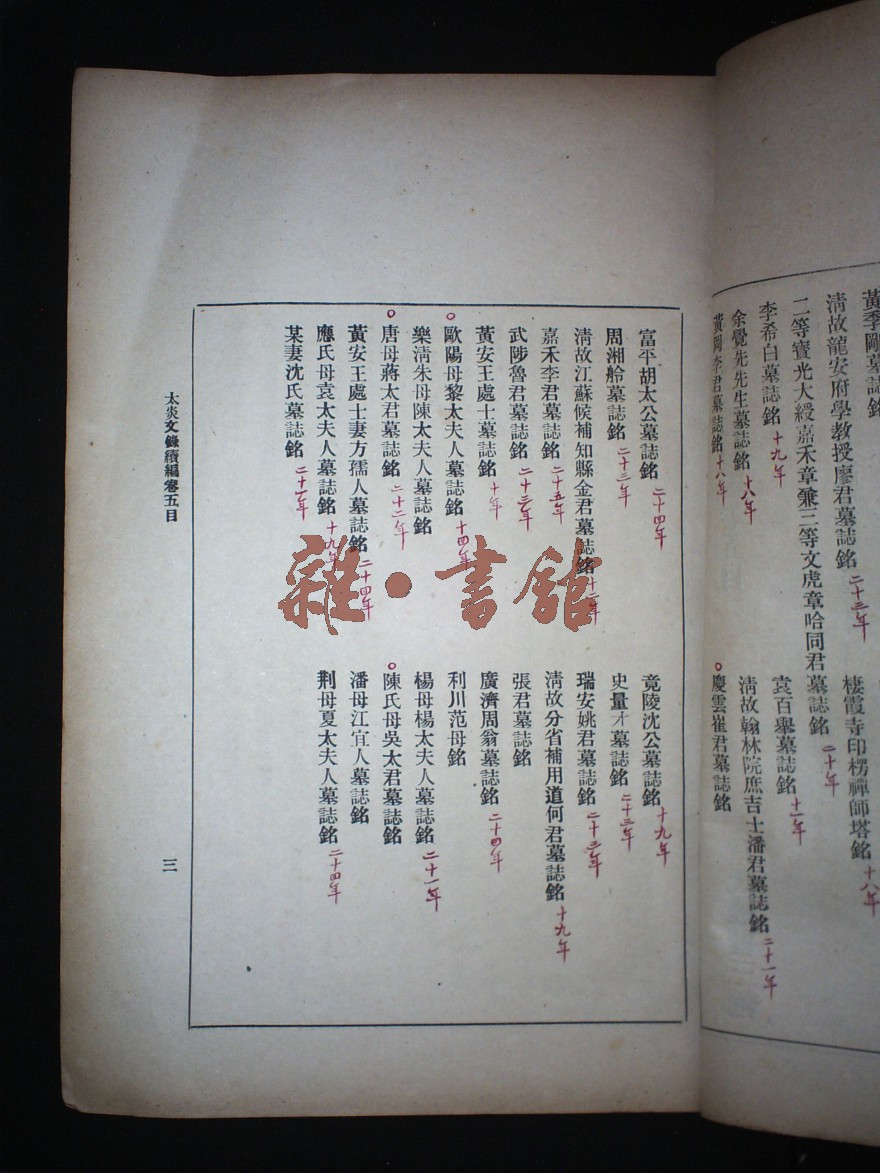 黃季剛墓誌銘
清故龍安府學教授廖君墓誌銘 二十三年
棲霞寺印楞禪師塔銘 十八年
二等寶光大綬嘉禾章兼三等文虎章哈同君墓誌銘 二十年
李希白墓誌銘 十九年
袁百舉墓誌銘 十一年
余覺先先生墓誌銘 十八年
清故翰林院庶吉士潘君墓誌銘 二十一年
黃岡李君墓誌銘 十八年
慶雲崔君墓誌銘
富平胡太公墓誌銘 二十四年
竟陵沈公墓誌銘 十九年
周湘舲墓誌銘 二十三年
史量才墓誌銘 二十三年
清故江蘇候補知縣金君墓誌銘
瑞安姚君墓誌銘 二十三年
嘉禾李君墓誌銘 二十五年
清故分省補用道何君墓誌銘 十九年
武陟魯君墓誌銘 二十三年
張君墓誌銘
黃安王處士墓誌銘 十年
廣濟周翁墓誌銘 二十四年
歐陽母黎太夫人墓誌銘 十四年
利川范母銘
樂清朱母陳太夫人墓誌銘
楊母楊太夫人墓誌銘 二十一年
唐母蔣太君墓誌銘 二十二年
陳氏母吳太君墓誌銘
黃安王處士妻方孺人墓誌銘 二十四年
潘母江宜人墓誌銘
應氏母袁太夫人墓誌銘 十九年
荆母夏太夫人墓誌銘 二十四年
某妻沈氏墓誌銘 二十一年
太炎文錄續編卷五目
三
雜·書館